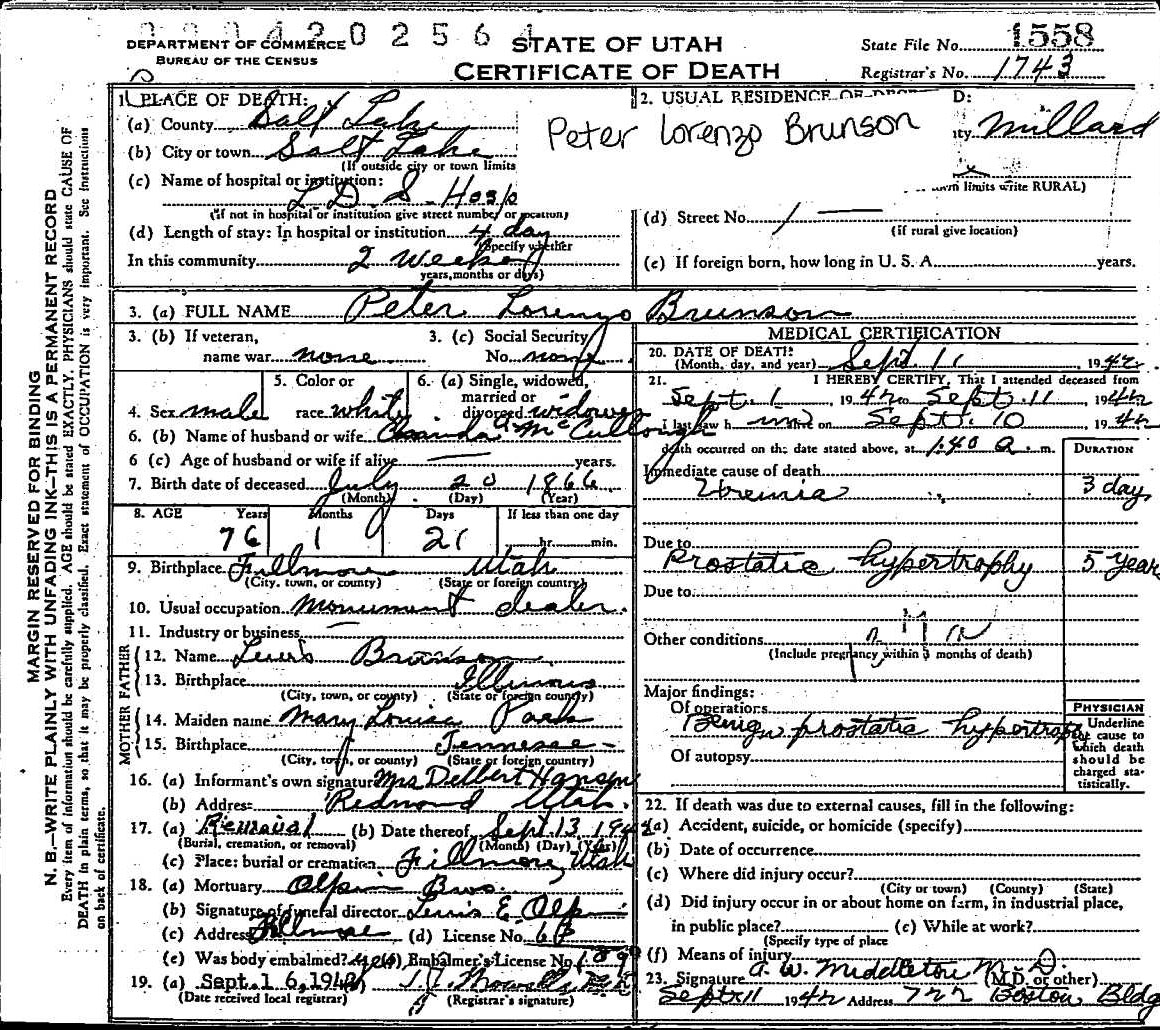 2 0 2 5 6 4
DEPARTMENT OF COMMERCE
BUREAU OF THE CENSUS
STATE OF UTAH
CERTIFICATE OF DEATH
State File No. 1558
Registrar's No. 1743
1. PLACE OF DEATH:
(a) County Salt Lake
(b) City or town Salt Lake
(If outside city or town limits
(c) Name of hospital or institution:
L. D. S. Hosp
(if not in hospital or institution give street number or location)
(d) Length of stay: In hospital or institution 4 day
(Specify whether
In this community 2 Weeks
years, months or days)
2. USUAL RESIDENCE OF D:
Peter Lorenzo Brunson
ty Millard
wn limits write RURAL)
(d) Street No.
(if rural give location)
(e) If foreign born, how long in U. S. A. years.
3. (a) FULL NAME Peter Lorenzo Brunson
3. (b) If veteran,
name war none
3. (c) Social Security
No. none
4. Sex male
5. Color or
race white
6. (a) Single, widowed,
married or
divorced widower
6. (b) Name of husband or wife McCullough
6 (c) Age of husband or wife if alive years.
7. Birth date of deceased July 20 1866
(Month) (Day) (Year)
8. AGE Years Months Days If less than one day
76 1 21 hr. min.
9. Birthplace Fillmore Utah
(City, town, or county) (State or foreign country)
10. Usual occupation Monument dealer.
11. Industry or business
FATHER
12. Name Lewis Brunson
13. Birthplace Illinois
(City, town, or county) (State or foreign county)
MOTHER
14. Maiden name Mary Louisa Park
15. Birthplace Tennesee
(City, town, or county) (State or foreign country)
16. (a) Informant's own signature Mrs Delbert Hansen
(b) Address Redmond Utah.
17. (a) Removal (b) Date thereof Sept. 13 194
(Burial, cremation, or removal) (Month) (Day) (Year)
(c) Place: burial or cremation Fillmore, Utah
18. (a) Mortuary Olpin Bros.
(b) Signature of funeral director Lewis E. Olpin
(c) Address Fillmore (d) License No.
(e) Was body embalmed? yes (f) Embalmer's License No.
19. (a) Sept. 16, 1942 (b)
(Date received local registrar) (Registrar's signature)
MEDICAL CERTIFICATION
20. DATE OF DEATH:
(Month, day, and year) Sept. 11, 1942
21. I HEREBY CERTIFY, That I attended deceased from
Sept. 1, 1942 to Sept. 11, 1942
I last saw him alive on Sept. 10, 1942
death occurred on the date stated above, at 1:40 a. m.
DURATION
Immediate cause of death
Uremia 3 day
Due to
Prostatic hypertrophy 5 years
Due to
Other conditions
(Include pregnancy within 3 months of death)
Major findings:
Of operations
Benign prostatic hypertrophy
Of autopsy
PHYSICIAN
Underline
the cause to
which death
should be
charged sta-
tistically.
22. If death was due to external causes, fill in the following:
(a) Accident, suicide, or homicide (specify)
(b) Date of occurrence
(c) Where did injury occur?
(City or town) (County) (State)
(d) Did injury occur in or about home on farm, in industrial place,
in public place? (e) While at work?
(Specify type of place
(f) Means of injury
23. Signature A. W. Middleton M. D.
(M.D. or other)
Sept 11 1942 Address 722 Boston Bldg
MARGIN RESERVED FOR BINDING
N. B.—WRITE PLAINLY WITH UNFADING INK—THIS IS A PERMANENT RECORD
Every item of information should be carefully supplied. AGE should be stated EXACTLY. PHYSICIANS should state CAUSE OF
DEATH in plain terms, so that it may be properly classified. Exact statement of OCCUPATION is very important. See instructions
on back of certificate.